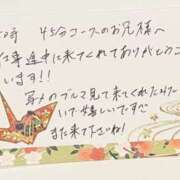 時 45分コースのお兄様へ
仕事途中に来てくれてありがとうござ
います!!
写メのブルマ見て来てくれたみた
いで嬉しいですっ
また来て下さいね!